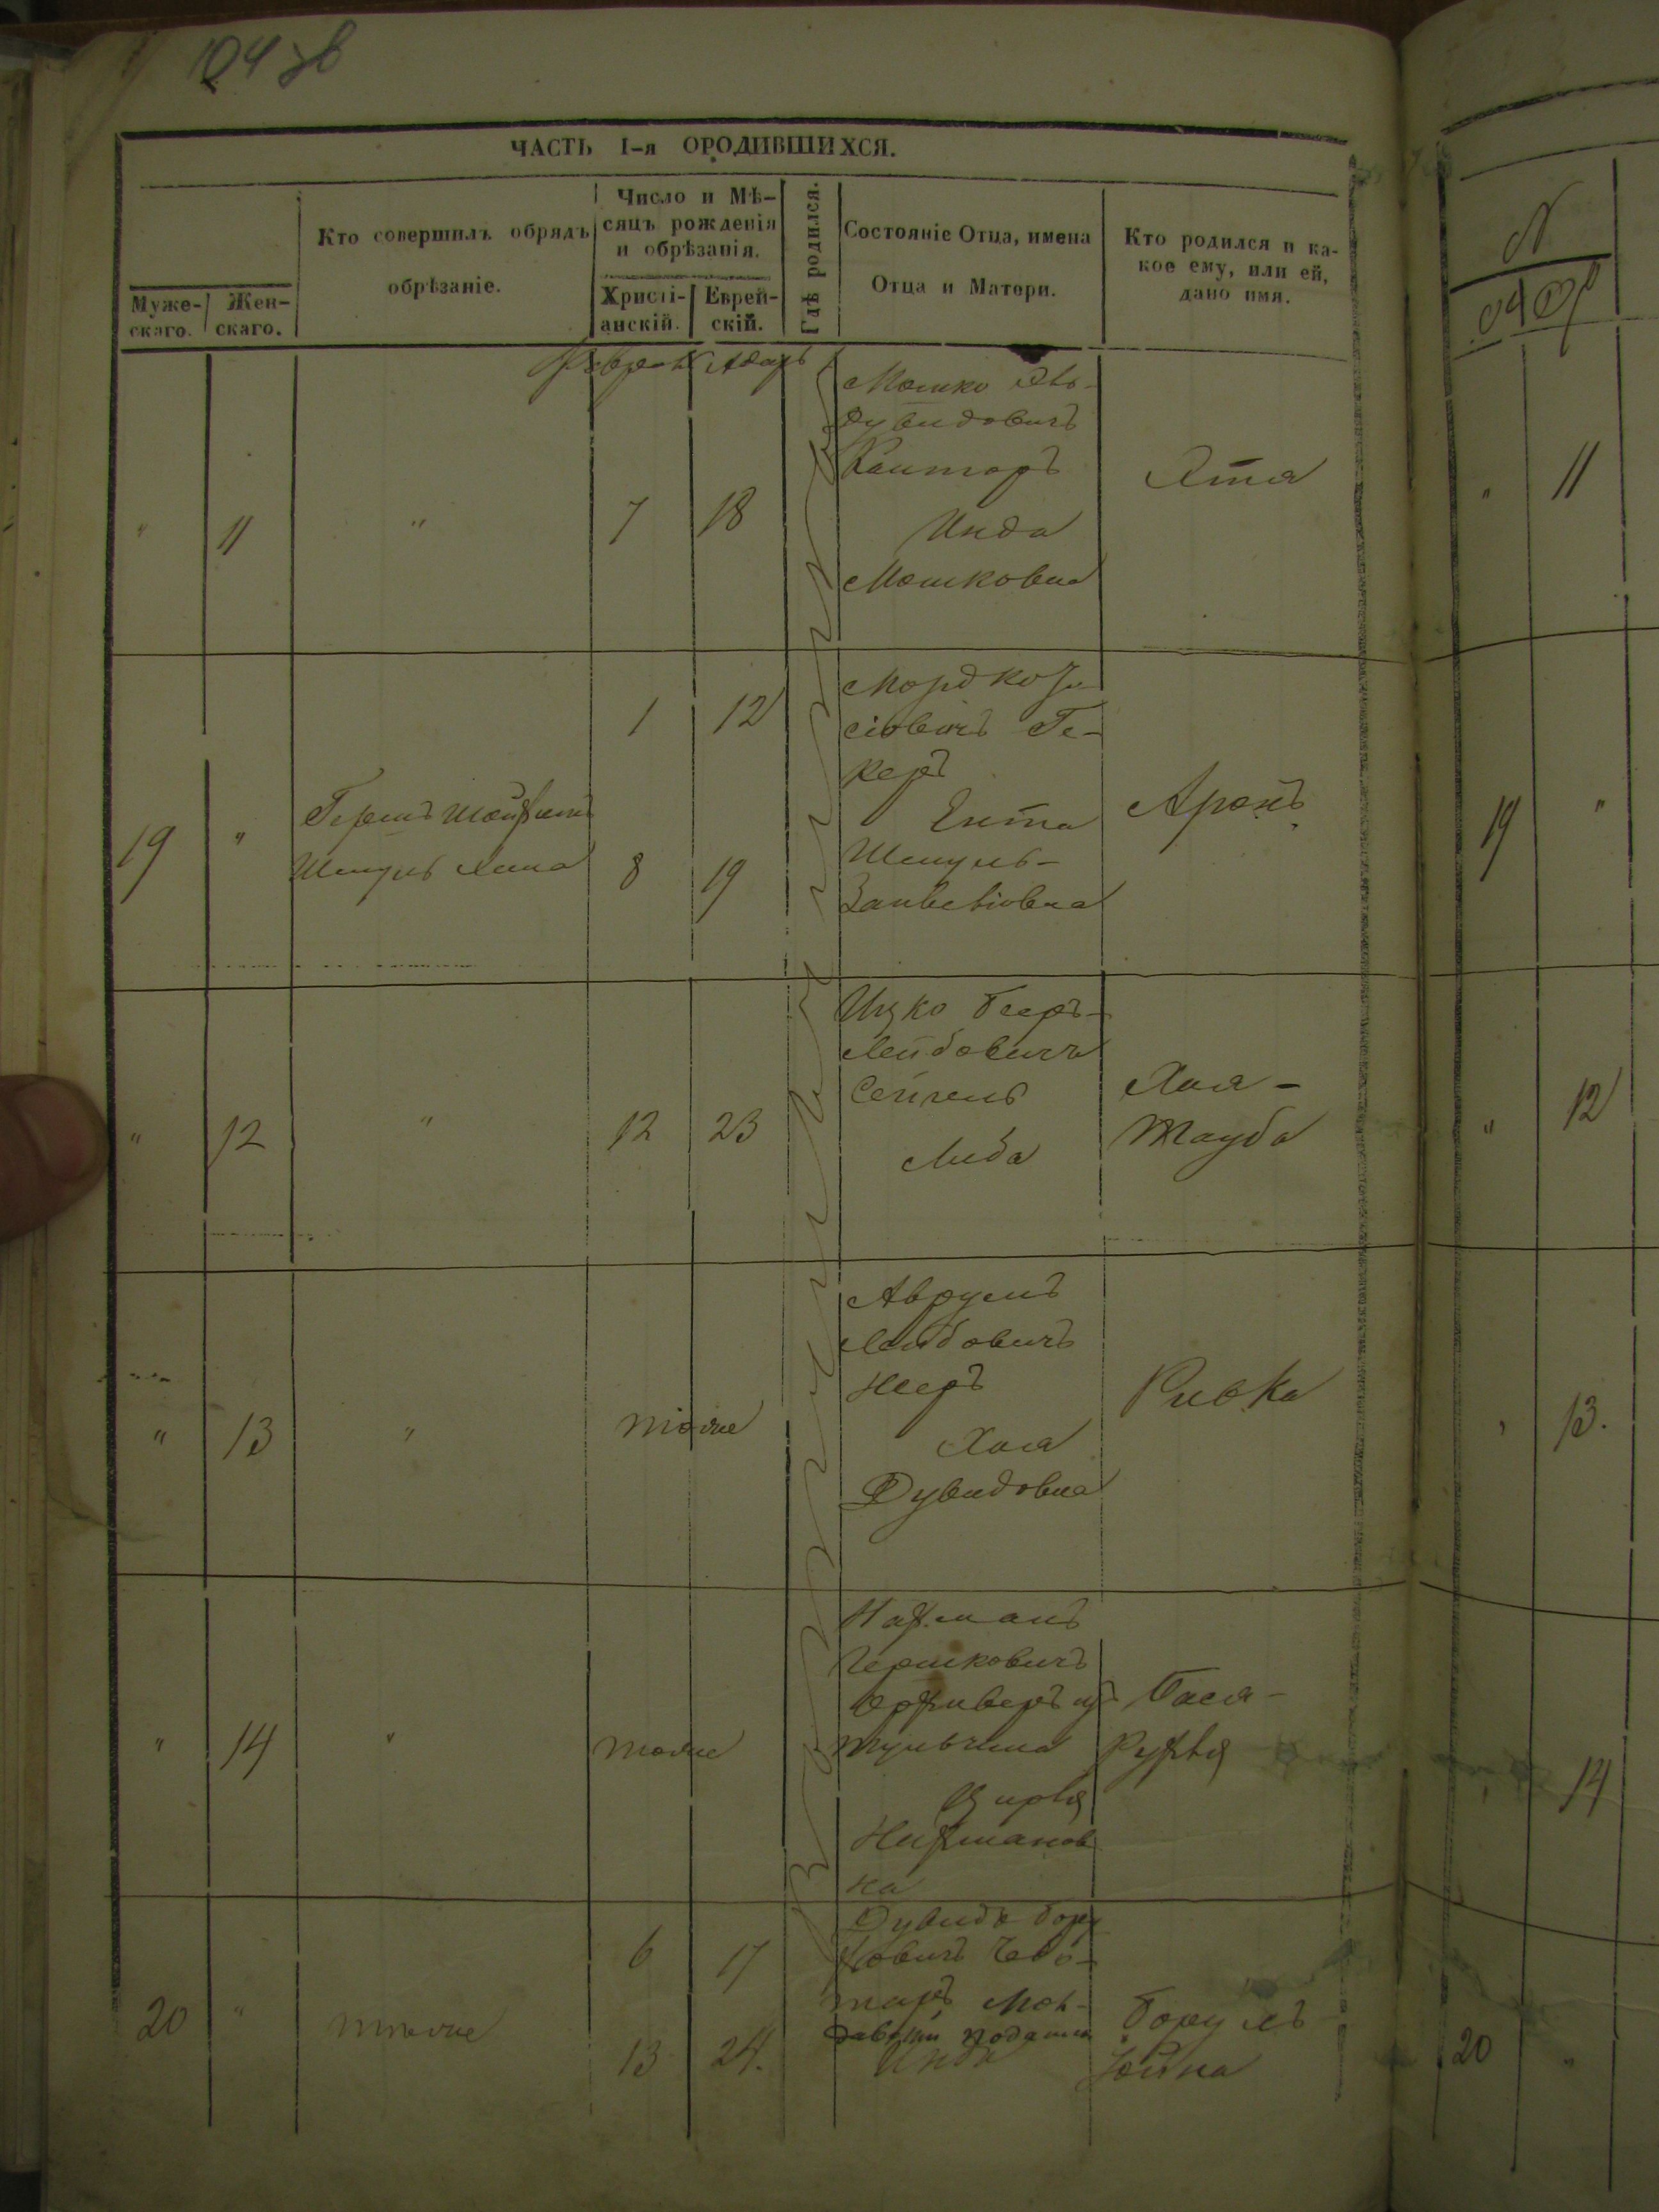 104 зв
ЧАСТЬ I-я О РОДИВШИХСЯ.
Муже-
скаго.
Жен-
скаго.
Кто совершилъ обрядъ
обрѣзаніе.
Число и Мѣ-
сяцъ рожденія
и обрѣзанія.
Христі-
анскій.
Еврей-
скій.
Гдѣ родился.
Состояніе Отца, имена
Отца и Матери.
Кто родился и ка-
кое ему, или ей,
дано имя.
Адаръ
" 11 " 7 18
Мошко
Дувидовичъ
Канторъ
Инда
Мошковна
Ята
19 "
Гершъ
Шмуль
1 12
8 19
Мордко Іо-
сіовичъ Ге-
керъ
Ента
Шмуль-
Занвеліовна
Аронъ
" 12 " 12 23
Ицко Беръ-
Лейбовичъ
Либа
Хая-
Тауба
" 13 " тоже
Аврумъ
Лейбовичъ
Хая
Дувидовна
Ривка
" 14 " тоже
Нахманъ
Гершковичъ
Тульчина
Нахманов
на
Бася-
Рухля
20 " тоже
6 17
13 24.
Дувидъ Бору
ховичъ Чебо-
таръ Мол-
Инда
Борухъ
Іойна
" 11
19 "
" 12
" 13.
" 14
20 "